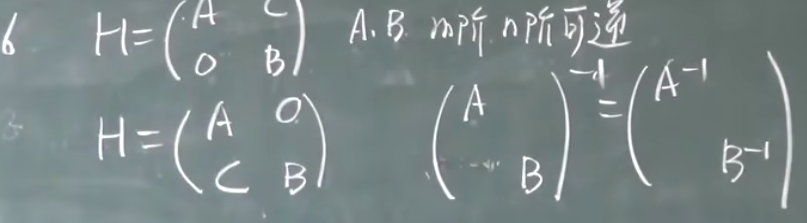 6 H=(A C; 0 B) A.B m阶.n阶可逆
H=(A 0; C B) (A B)^-1=(A^-1 B^-1)